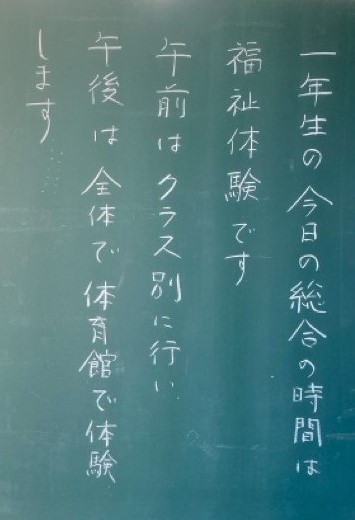 一年生の今日の総合の時間は
福祉体験です
午前はクラス別に行い
午後は全体で体育館で体験
します